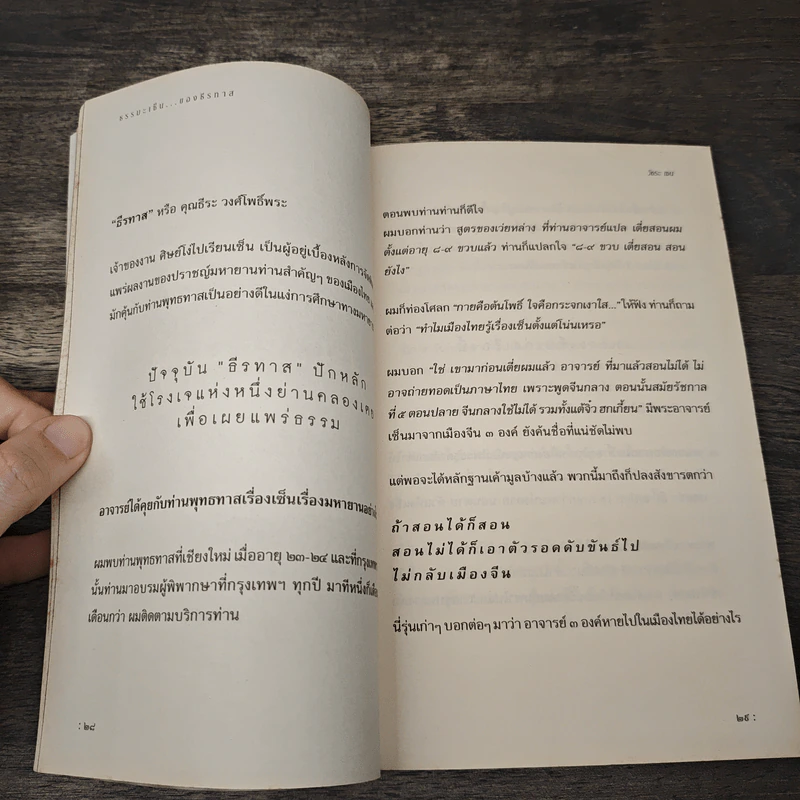 ธรรมะเซ็น...ของธีรทาส
"ธีรทาส" หรือ คุณธีระ วงศ์โพธิ์พระ
เจ้าของงาน ศิษย์โง่ไปเรียนเซ็น เป็นผู้อยู่เบื้องหลังการ
แพร่ผลงานของปราชญ์มหายานท่านสำคัญๆ ของเมืองไทย
มักคุ้นกับท่านพุทธทาสเป็นอย่างดีในแง่การศึกษาทาง
ปัจจุบัน "ธีรทาส" ปักหลัก
ใช้โรงเจแห่งหนึ่งย่านคลองเตย
เพื่อเผยแพร่ธรรม
อาจารย์ได้คุยกับท่านพุทธทาสเรื่องเซ็นเรื่องมหายาน
ผมพบท่านพุทธทาสที่เชียงใหม่ เมื่ออายุ ๒๓-๒๔ และที่กรุงเทพฯ
นั้นท่านมาอบรมผู้พิพากษาที่กรุงเทพฯ ทุกปี มาทีหนึ่งก็
เดือนกว่า ผมติดตามบริการท่าน
: ๒๘
วีระ
ตอนพบท่านท่านก็ดีใจ
ผมบอกท่านว่า สูตรของเว่ยหล่าง ที่ท่านอาจารย์แปล เตี่ยสอนผม
ตั้งแต่อายุ ๘-๙ ขวบแล้ว ท่านก็แปลกใจ "๘-๙ ขวบ เตี่ยสอน สอน
ยังไง"
ผมก็ท่องโศลก "กายคือต้นโพธิ์ ใจคือกระจกเงาใส..." ให้ฟัง ท่านก็ถาม
ต่อว่า "ทำไมเมืองไทยรู้เรื่องเซ็นตั้งแต่โน่นเหรอ"
ผมบอก "ใช่ เขามาก่อนเตี่ยผมแล้ว อาจารย์ ที่มาแล้วสอนไม่ได้ ไม่
อาจถ่ายทอดเป็นภาษาไทย เพราะพูดจีนกลาง ตอนนั้นสมัยรัชกาล
ที่ ๕ ตอนปลาย จีนกลางใช้ไม่ได้ รวมทั้งแต้จิ๋ว ฮกเกี้ยน" มีพระอาจารย์
เซ็นมาจากเมืองจีน ๓ องค์ ยังค้นชื่อที่แน่ชัดไม่พบ
แต่พอจะได้หลักฐานเค้ามูลบ้างแล้ว พวกนี้มาถึงก็ปลงสังขารตกว่า
ถ้าสอนได้ก็สอน
สอนไม่ได้ก็เอาตัวรอดดับขันธ์ไป
ไม่กลับเมืองจีน
นี่รุ่นเก่าๆ บอกต่อๆ มาว่า อาจารย์ ๓ องค์หายไปในเมืองไทยได้อย่างไร
๒๙ :